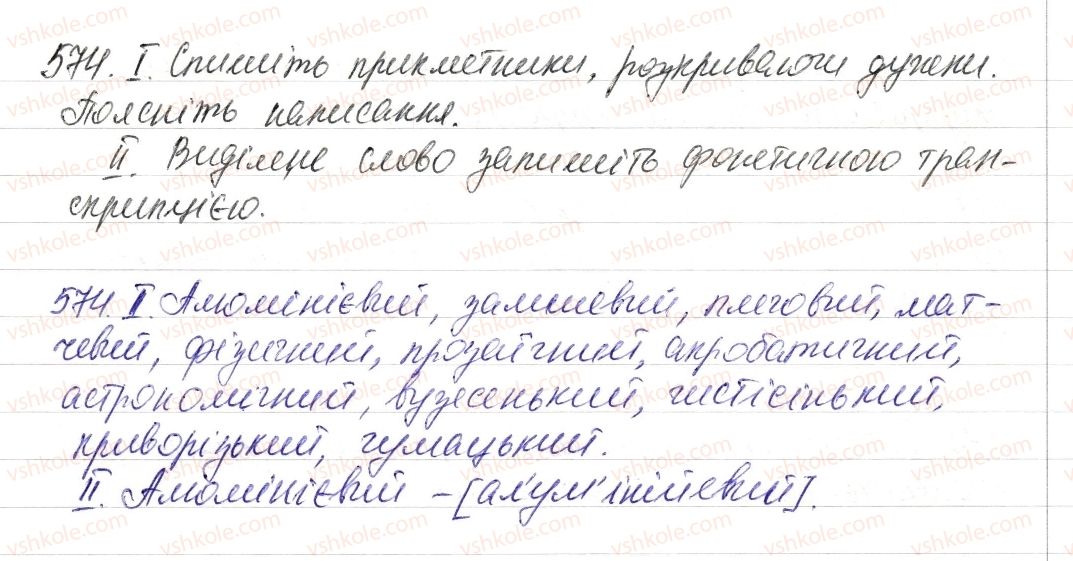 574. I. Спишіть прикметники, розкриваючи дужки.
Поясніть написання.
II. Виділене слово запишіть фонетичною тран-
скрипцією.
574. I. Алюмінієвий, замшевий, плюшовий, мат-
чевий, фізичний, прозаїчний, акробатичний,
астрономічний, вузесенький, чистісінький,
криворізький, чумацький.
II. Алюмінієвий – [ал'ум'ін'ійевий].